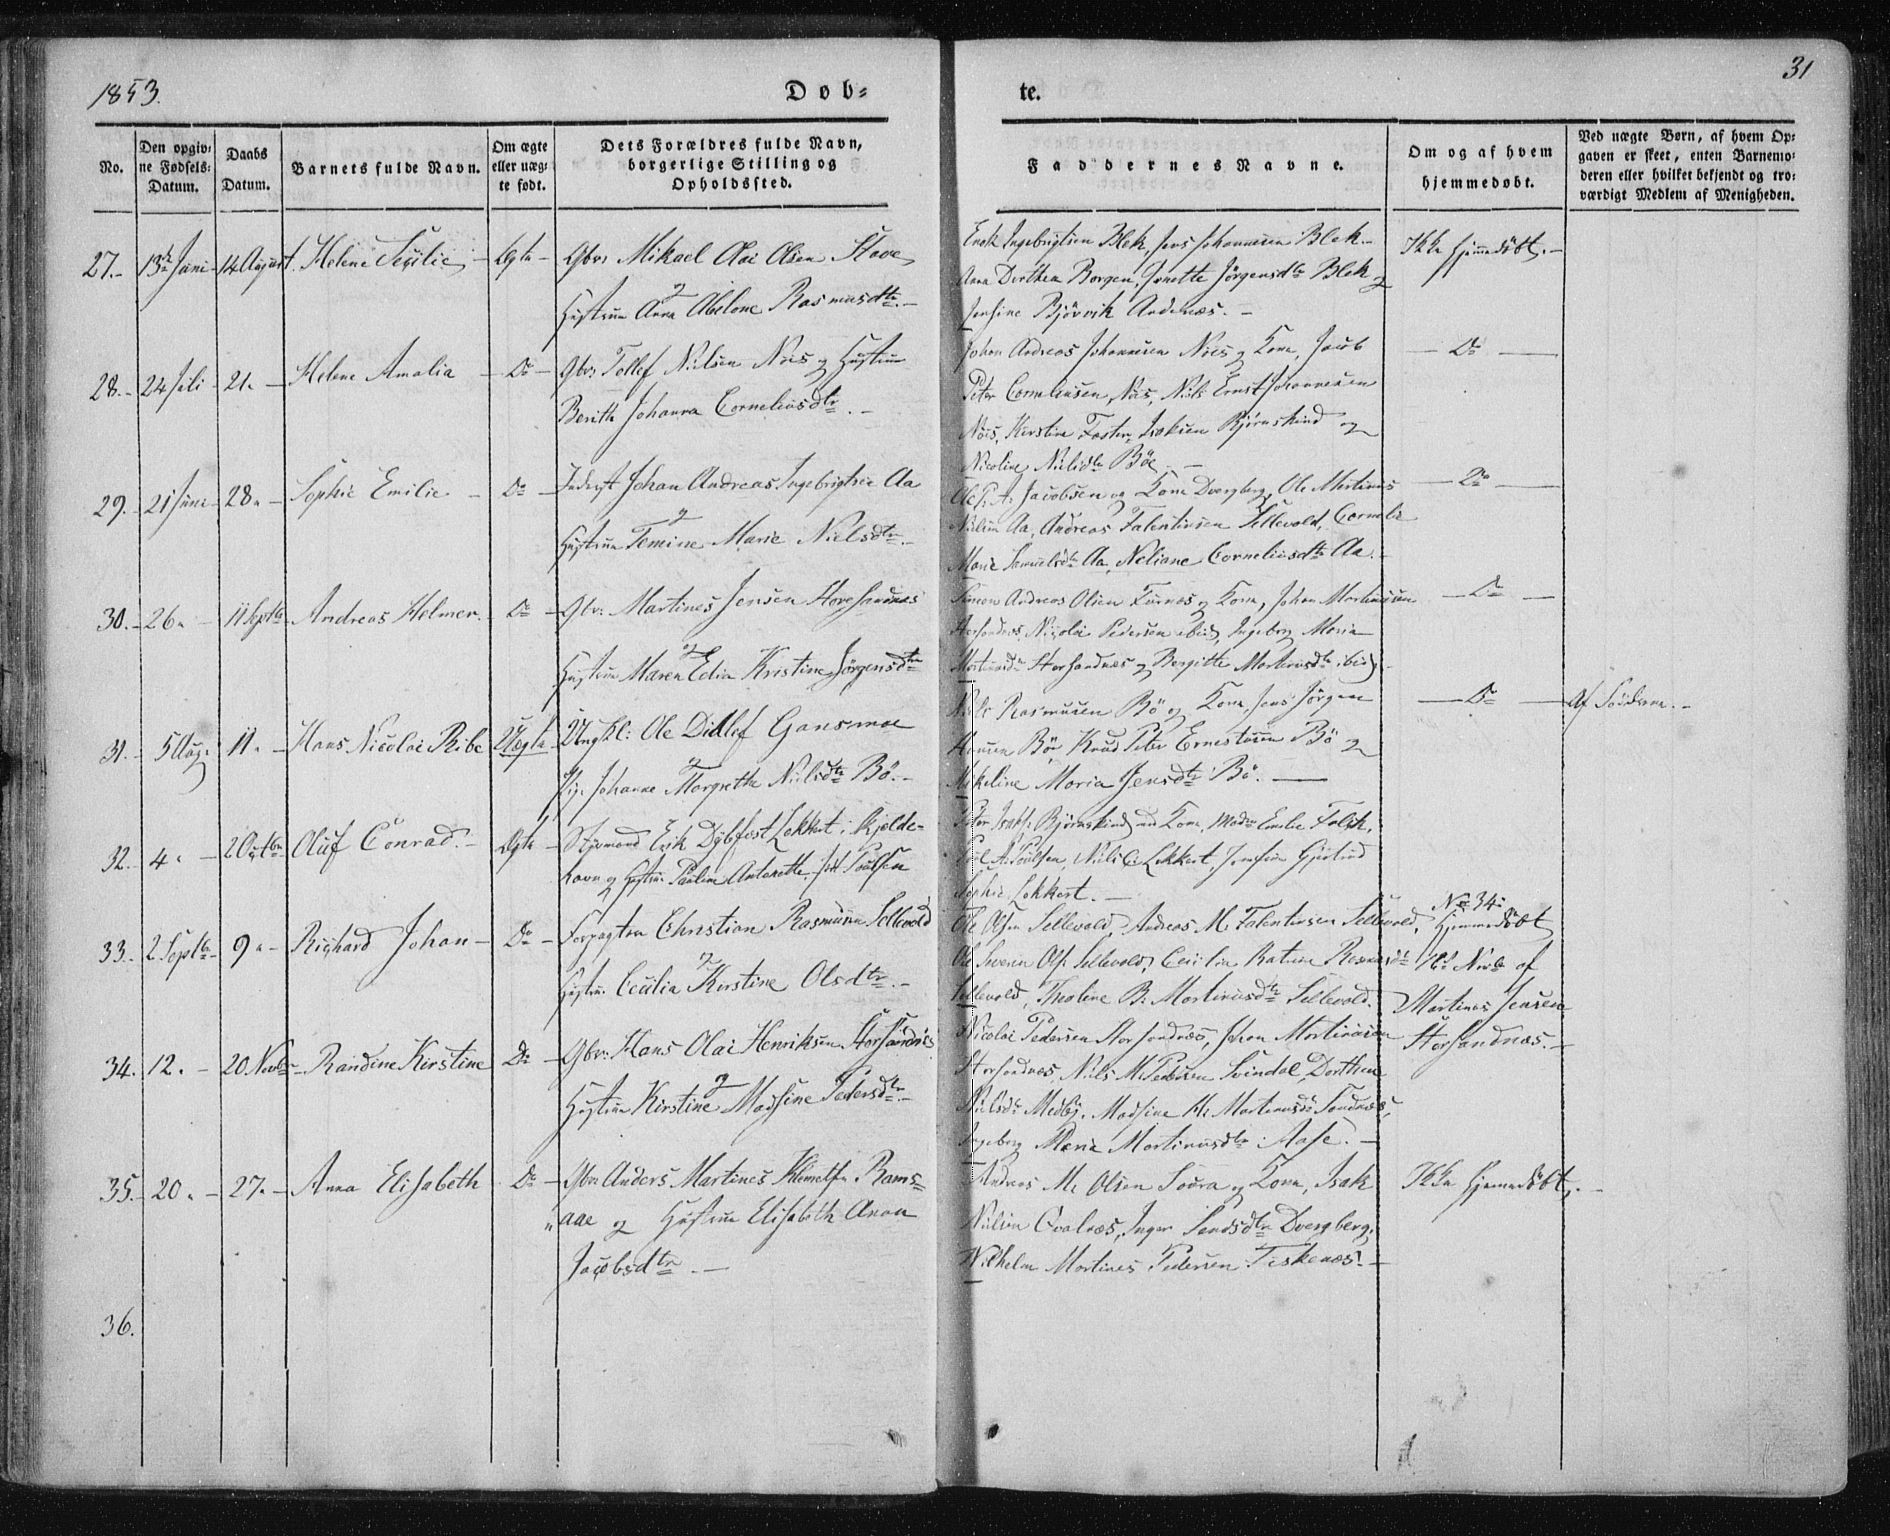 1853.
Døb=
te.
31
No.
Den opgiv=
ne Fødsels=
Datum.
Daabs
Datum.
Barnets fulde Navn.
Om ægte
eller uæg=
te født.
Dets Forældres fulde Navn,
borgerlige Stilling og
Opholdssted.
Faddernes Navne.
Om og af hvem
hjemmedøbt.
Ved uægte Børn, af hvem Op=
gaven er skeet, enten Barnemo=
deren eller hvilket bekjendt og tro=
værdigt Medlem af Menigheden.
27. 13de Juni 14 August. Helene Cecilie Ægte Gbr: Mikael Olai Olsen Stave
og
Hustrue Anna Abelone Rasmusdtr.
Enok Ingebrigtsen Blek, Jens Johannesen Blek
Anna Dorthea Borgen, Jonette Jørgensdtr Blek og
Jensine Bjövvik Andenæs.
Ikke hjemmedöbt.
28. 24 Juli 21. Helene Amalia Do Gbr: Tollef Nilsen Nøis og Hustrue
Berith Johanna Corneliusdtr.
Johan Andreas Johannesen Nøis og Kone, Jacob
Peter Corneliusen Nøis, Nils Ernst Johannesen
Nøis, Kirstine Isaksen Bjørnskind og
Nicoline Nilsdtr Böe.
Do
29. 21 Juni 28. Sophie Emilie Do Inderst Johan Andreas Ingebrigtsen Aa
og
Hustrue Temine Marie Nielsdtr.
Ole P. A. Jacobsen og Kone Dvergberg, Ole Martinus
Nilsen Aa, Andreas Falentinsen Sellevold, Cornelia
Marie Samuelsdtr Aa, Neliane Corneliusdtr Aa.
Do
30. 26. 11 Septbr Andreas Helmer. Do Gbr: Martines Jensen Storsandnæs
og
Hustrue Maren Edia Kristine Jörgensdtr
Simon Andreas Olsen og Kone, Johan Martinusen
Storsandnæs, Nicolai Pedersen ibid, Ingeborg Maria
Martinusdr Storsandnæs og Bergitte Martinusdtr ibid.
Do
31. 5 Aug. 11. Hans Nicolai Ribe Uægte Ungkl: Ole Didlef Gansmoe
og
Pig. Johanne Margretha Nilsdtr Bö.
Niels Rasmusen Bö og Kone, Jens Jörgen
Hansen Böe Knud Peter Ernestusen Bö og
Mikeline Maria Jensdtr Bö.
Do
Af
32. 4. 2 Octbr Oluf Conrad. Ægte Styrmand Erik Dybfest Lekkert i Kjelde=
havn og Hustrue Pauline Antonette Poulsen
Peter Isaks. Bjørnskind med Kone, Madm Emilie Falck,
Poul A. Poulsen, Nils C. Lekkert, Josefine Gjertrud
Sophie Lekkert.
33. 2 Septbr 9. Richard Johan Do Forpagter Christian Rasmusen Sellevold
og
Hustrue Cecilia Kirstine Olsdtr.
Ole Olsen Sellevold, Andreas M. Falentinsen Sellevold,
Ole Severin Ols. Sellevold, Cecilia Katrine Rasmusdtr
Sellevold, Theoline B. Martinusdtr Sellevold.
No 34:
Hjemmedöbt
Novbr af
Martines Jensen
Storsandnæs.
34. 12. 20 Novbr Randine Kirstine Do Gbr: Hans Olai Henriksen Storsandnæs
og
Hustrue Kirstine Madsine Pedersdtr.
Nicolai Pedersen Storsandnæs, Johan Martinusen
Storsandnæs, Nils M. Pedersen Svindal, Dorthea
Nielsdtr Medby, Madsine M. Martinusdtr Sandnæs,
Ingeborg Marie Martinusdtr Aase.
35. 20. 27. Anna Elisabeth Do Gbr: Anders Martines Klemetsen Rams=
aae og Hustrue Elisabeth Anna
Jacobsdtr.
Andreas M. Olsen Soura og Kone, Isak
Nilsen Qvalnæs, Inger Sendsdtr Dvergberg,
Vilhelm Martines Pedersen Fiskenæs.
Ikke hjemmedöbt.
36.